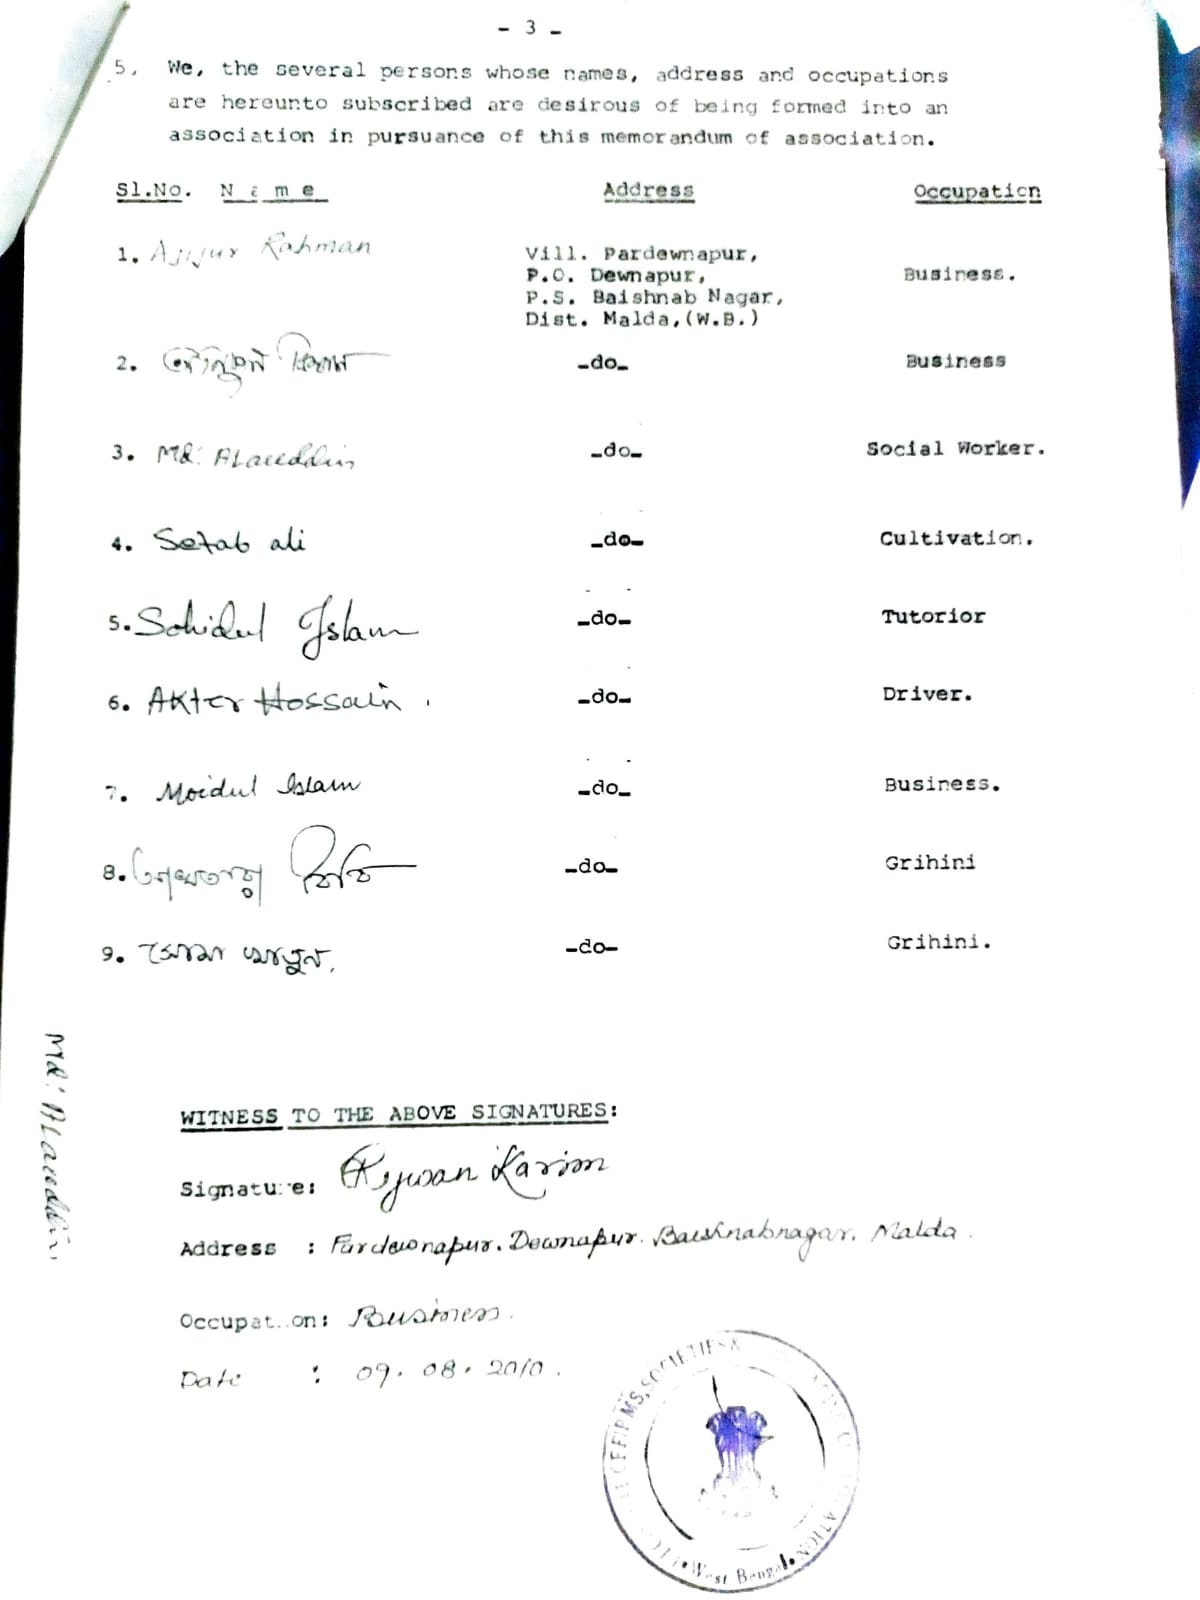 - 3 -
5. We, the several persons whose names, address and occupations
are hereunto subscribed are desirous of being formed into an
association in pursuance of this memorandum of association.
Sl.No. N a m e Address Occupation
1. Ajijur Rahman Vill. Pardewnapur,
P.O. Dewnapur, Business.
P.S. Baishnab Nagar,
Dist. Malda,(W.B.)
2. -do- Business
3. Md. Alaeddin -do- Social Worker.
4. Setab ali -do- Cultivation.
5. Sohidul Islam -do- Tutorior
6. Akter Hossain. -do- Driver.
7. Moidul Islam -do- Business.
8. বিবি -do- Grihini
9. খাতুন, -do- Grihini.
Md. Alaeddin.
WITNESS TO THE ABOVE SIGNATURES:
Signature: Rijwan Karim
Address : Pardewnapur. Dewnapur. Baishnabnagar. Malda.
Occupation: Business.
Date : 09.08.2010.
FIRMS, SOCIETIES &
West Bengal